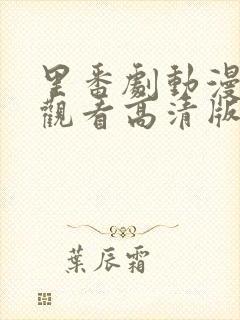 里番劇動漫
觀看高清版
葉辰霜